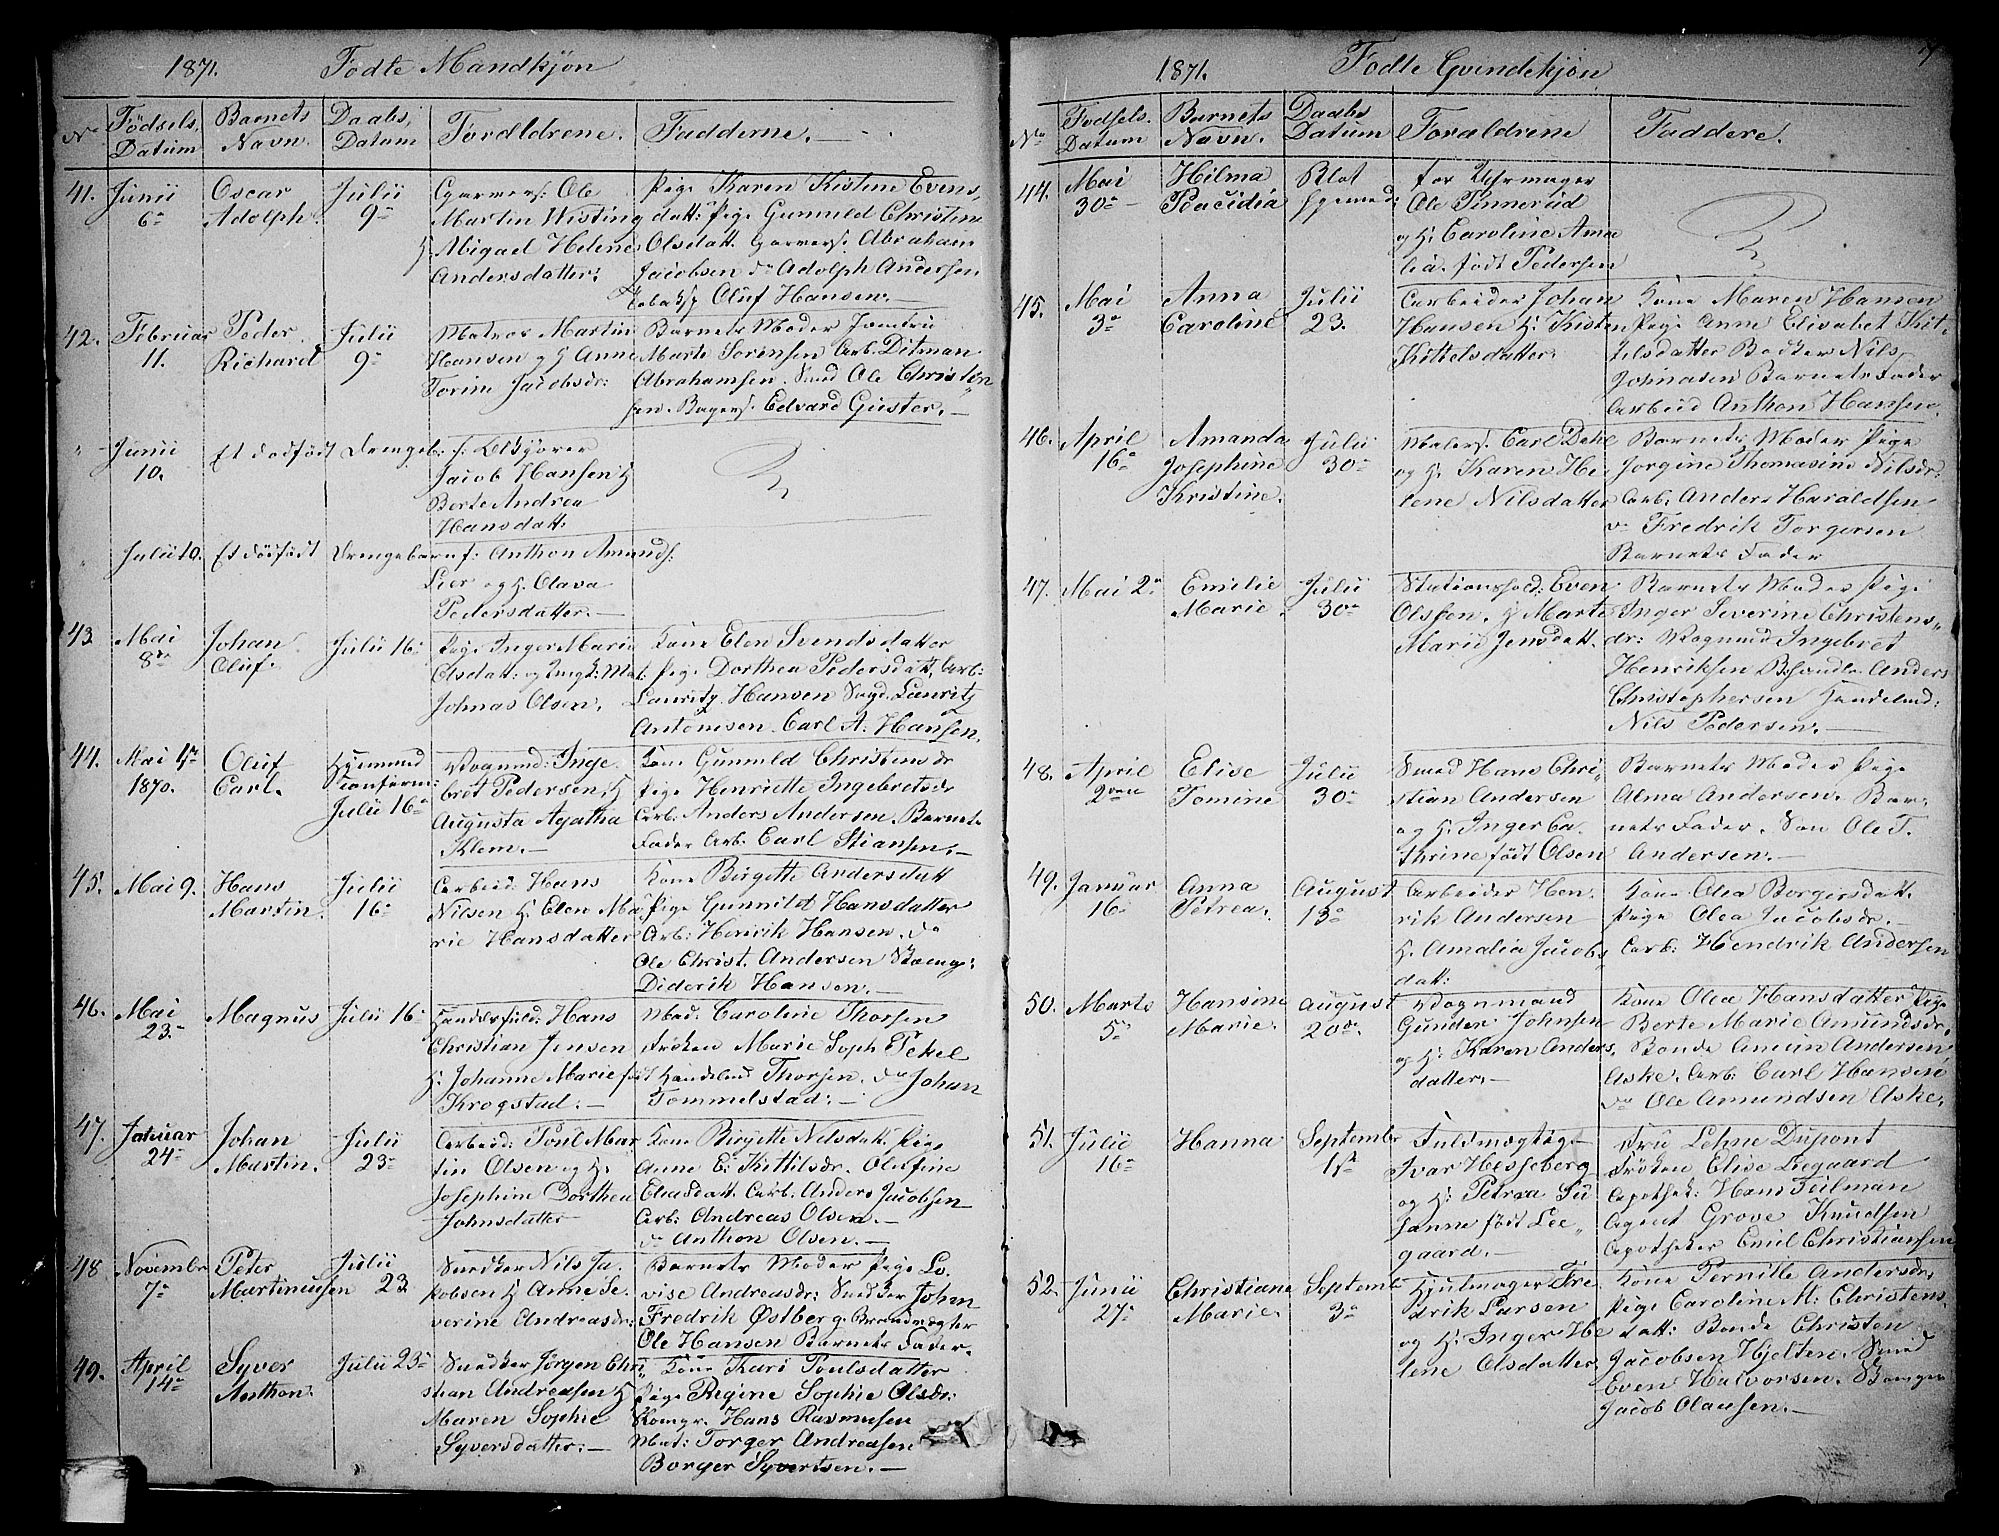 1871. Fodte Mandkjøn
No Fødsels Datum Barnets Navn. Daabs Datum Forældrene. Fadderne.
41. Junii 6te Oscar Adolph. Julii 9de
Garvers: Ole
Martin Wisting
H Abigael Helene
Andersdatter:
Pige Karen Kistine Evens
datt: Pige Gunnild Christine
Olsdatt. Garvers. Abraham
Jacobsen do Adolph Andersen
Oluf Hansen.
42. Februar 11. Peder Richard Julii 9de
Matros Martin
Hansen og H Anne
Torine Jacobsdr:
Barnets Moder Jomfru
Marte Sørensen Arb. Ditman
Abrahamsen. Smed Ole Christen
sen. Bagers. Edvard Guster.
" Junii 10. Et dødfødt Drengeb:
Jacob Hansen H
Berte Andrea
Hansdatt:
" Julii 10. Et dødfødt Drengebarn af: Anthon Amunds:
Lier og H. Olava
Pedersdatter.
43. Mai 8de Johan Oluf. Julii 16:
Pige Inger Marie
Olsdatt: og Ungk: Mat.
Johnas Olsen.
Kone Elen Svendsdatter
Pige Dorthea Pedersdatt. Arb:
Lauritz Hansen Lauritz
Antonisen. Carl A. Hansen.
44. Mai 1870. Oluf Carl. Hjemmed Confirm: Julii 16de
Vognmd: Inge
bret Pedersen, H
Augusta Agatha
Klem.
Kone Gunnild Christensdr
Pige Henriette Ingebretsdr
Arb: Anders Andersen. Barnets
Fader Arb. Carl Stiansen.
45. Mai 9. Hans Martin. Julii 16de
Arbeid: Hans
Nilsen H. Elen Ma
rie Hansdatter
Kone Birgitte Andersdatt
Pige Gunnilet Hansdatter
Arb: Henrik Hansen. do
Ole Christ. Andersen
Diderik Hansen.
46. Mai 23de Magnus Julii 16de
Hans
Christian Jensen
H. Johanne Marie født
Krogstad.
Mad: Caroline Thorsen
Frøken Marie Soph Pekel
Handelsmd Thorsen. do Johan
Tommelstad:
47. Januar 24de Johan Martin. Julii 23de
Arbeid: Poul Mar
tin Olsen og H.
Josephine Dorthea
Johnsdatter
Kone Birgitte Nilsdatt. Pige
Anne E. Kittilsdr. Olefine
Eliasdatt. Arb. Anders Jacobsen
Arb: Andreas Olsen.
do Anthon Olsen.
48 Novembr 7de Peter Martinusen Julii 23
Snedker Nils Ja
kobsen H Anne Se
verine Andreasdr:
Barnets Moder Pige Lo
vise Andreasdr: Snedker Johan
Fredrik Østberg. Brandvægter
Ole Hansen Barnets Fader.
49. April 14de Syver Anthon. Julii 23de
Snedker Jørgen Chri
stian Andreasen H
Maren Sophie
Syversdatter:
Kone Kari Poulsdatter
Pige Regine Sophie Olsdr:
Hans Rasmusen
Mat: Torger Andreasen
Borger Syvertsen.
1871. Fodte Qvindekjøn
No Fodsels. Datum Barnets Navn. Daabs Datum Forældrene Faddere.
44. Mai 30te Hilma Placidia Blot hjemmed:
for Uhrmager
Ole Pinnerud
og H: Caroline Ama
lia. født Pedersen
45. Mai 3de Anna Caroline Julii 23.
Arbeider Johan
Hansen H: Kisten
Kittelsdatter
Kone Maren Hansen
Pige Anne Elisabet Kit
telsdatter Bødker Nils
Johnasen Barnets Fader
Arbeid Anthon Hansen.
46. April 16de Amanda Josephine Kristine. Julii 30te
Malers. Carl Dehl
og H. Karen He
lene Nilsdatter
Barnets Moder Pige
Jorgine Thomasine Nilsdr.
Arb. Anders Haraldsen
do Fredrik Torgersen
Barnets Fader
47. Mai 2de Emilie Marie. Julii 30te
Stationshold: Even
Olssen. H Marte
Marie Jensdatt.
Barnets Moder Pige
Inger Severine Christens
dr: Vognmd Ingebret
Henriksen Anders
Christophersen Handelsmd:
Nils Pedersen.
48. April 2den Elise Tomine Julii 30te
Smed Hans Chri
stian Andersen
og H. Inger Ca
thrine født Olsen
Barnets Moder Pige
Alma Andersen. Bar
nets Fader. Søn Ole T.
Andersen.
49. Januar 16de Anna Petrea. August 13de
Arbeider Hen
rik Andersen
H. Amalia Jacobs
datt:
Kone Olea Borgersdatt.
Pige Olea Jacobsdr.
Arb: Hendrik Andersen
50. Marts 5te Hansine Marie. August 20de
Vognmand
Gunder Johnsen
og H: Karen Anders
datter.
Kone Olea Hansdatter Pige
Berte Marie Amundsdr.
Bonde Amun Andersen
Aske. Arb: Carl Hansen
do Ole Amundsen Aske.
51. Julii 16de Hanna Septembr 1ste
Fuldmægtig
Ivar Hesseberg
og H: Petrea Su
sanne født Lee
gaard.
Fru Lehne Dupont
Frøken Elise Liegaard
Apothek: Hans Feilman
Agent Grove Knudsen
Apotheker Emil Christiansen
52. Junii 27de Christiane Marie. Septemb 3de
Hjulmager Fre
drik Larsen
og H. Inger He
lene Olsdatter
Kone Pernille Andersdr,
Pige Caroline M: Christens
datt: Bonde Christen
Jacobsen Hjelten. Smed
Even Halvorsen.
Jacob Olausen.